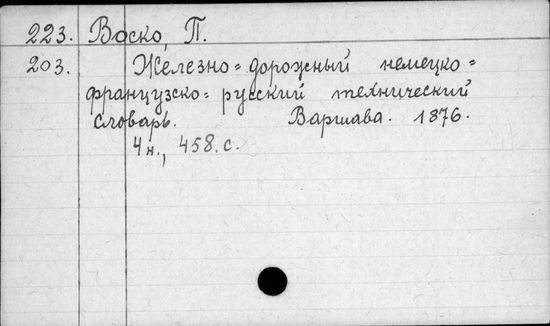 223. Воско, П.
203. Железно=дорожный немецко=
французско=русский технический
словарь. Варшава. 1876.
4н., 458.с.